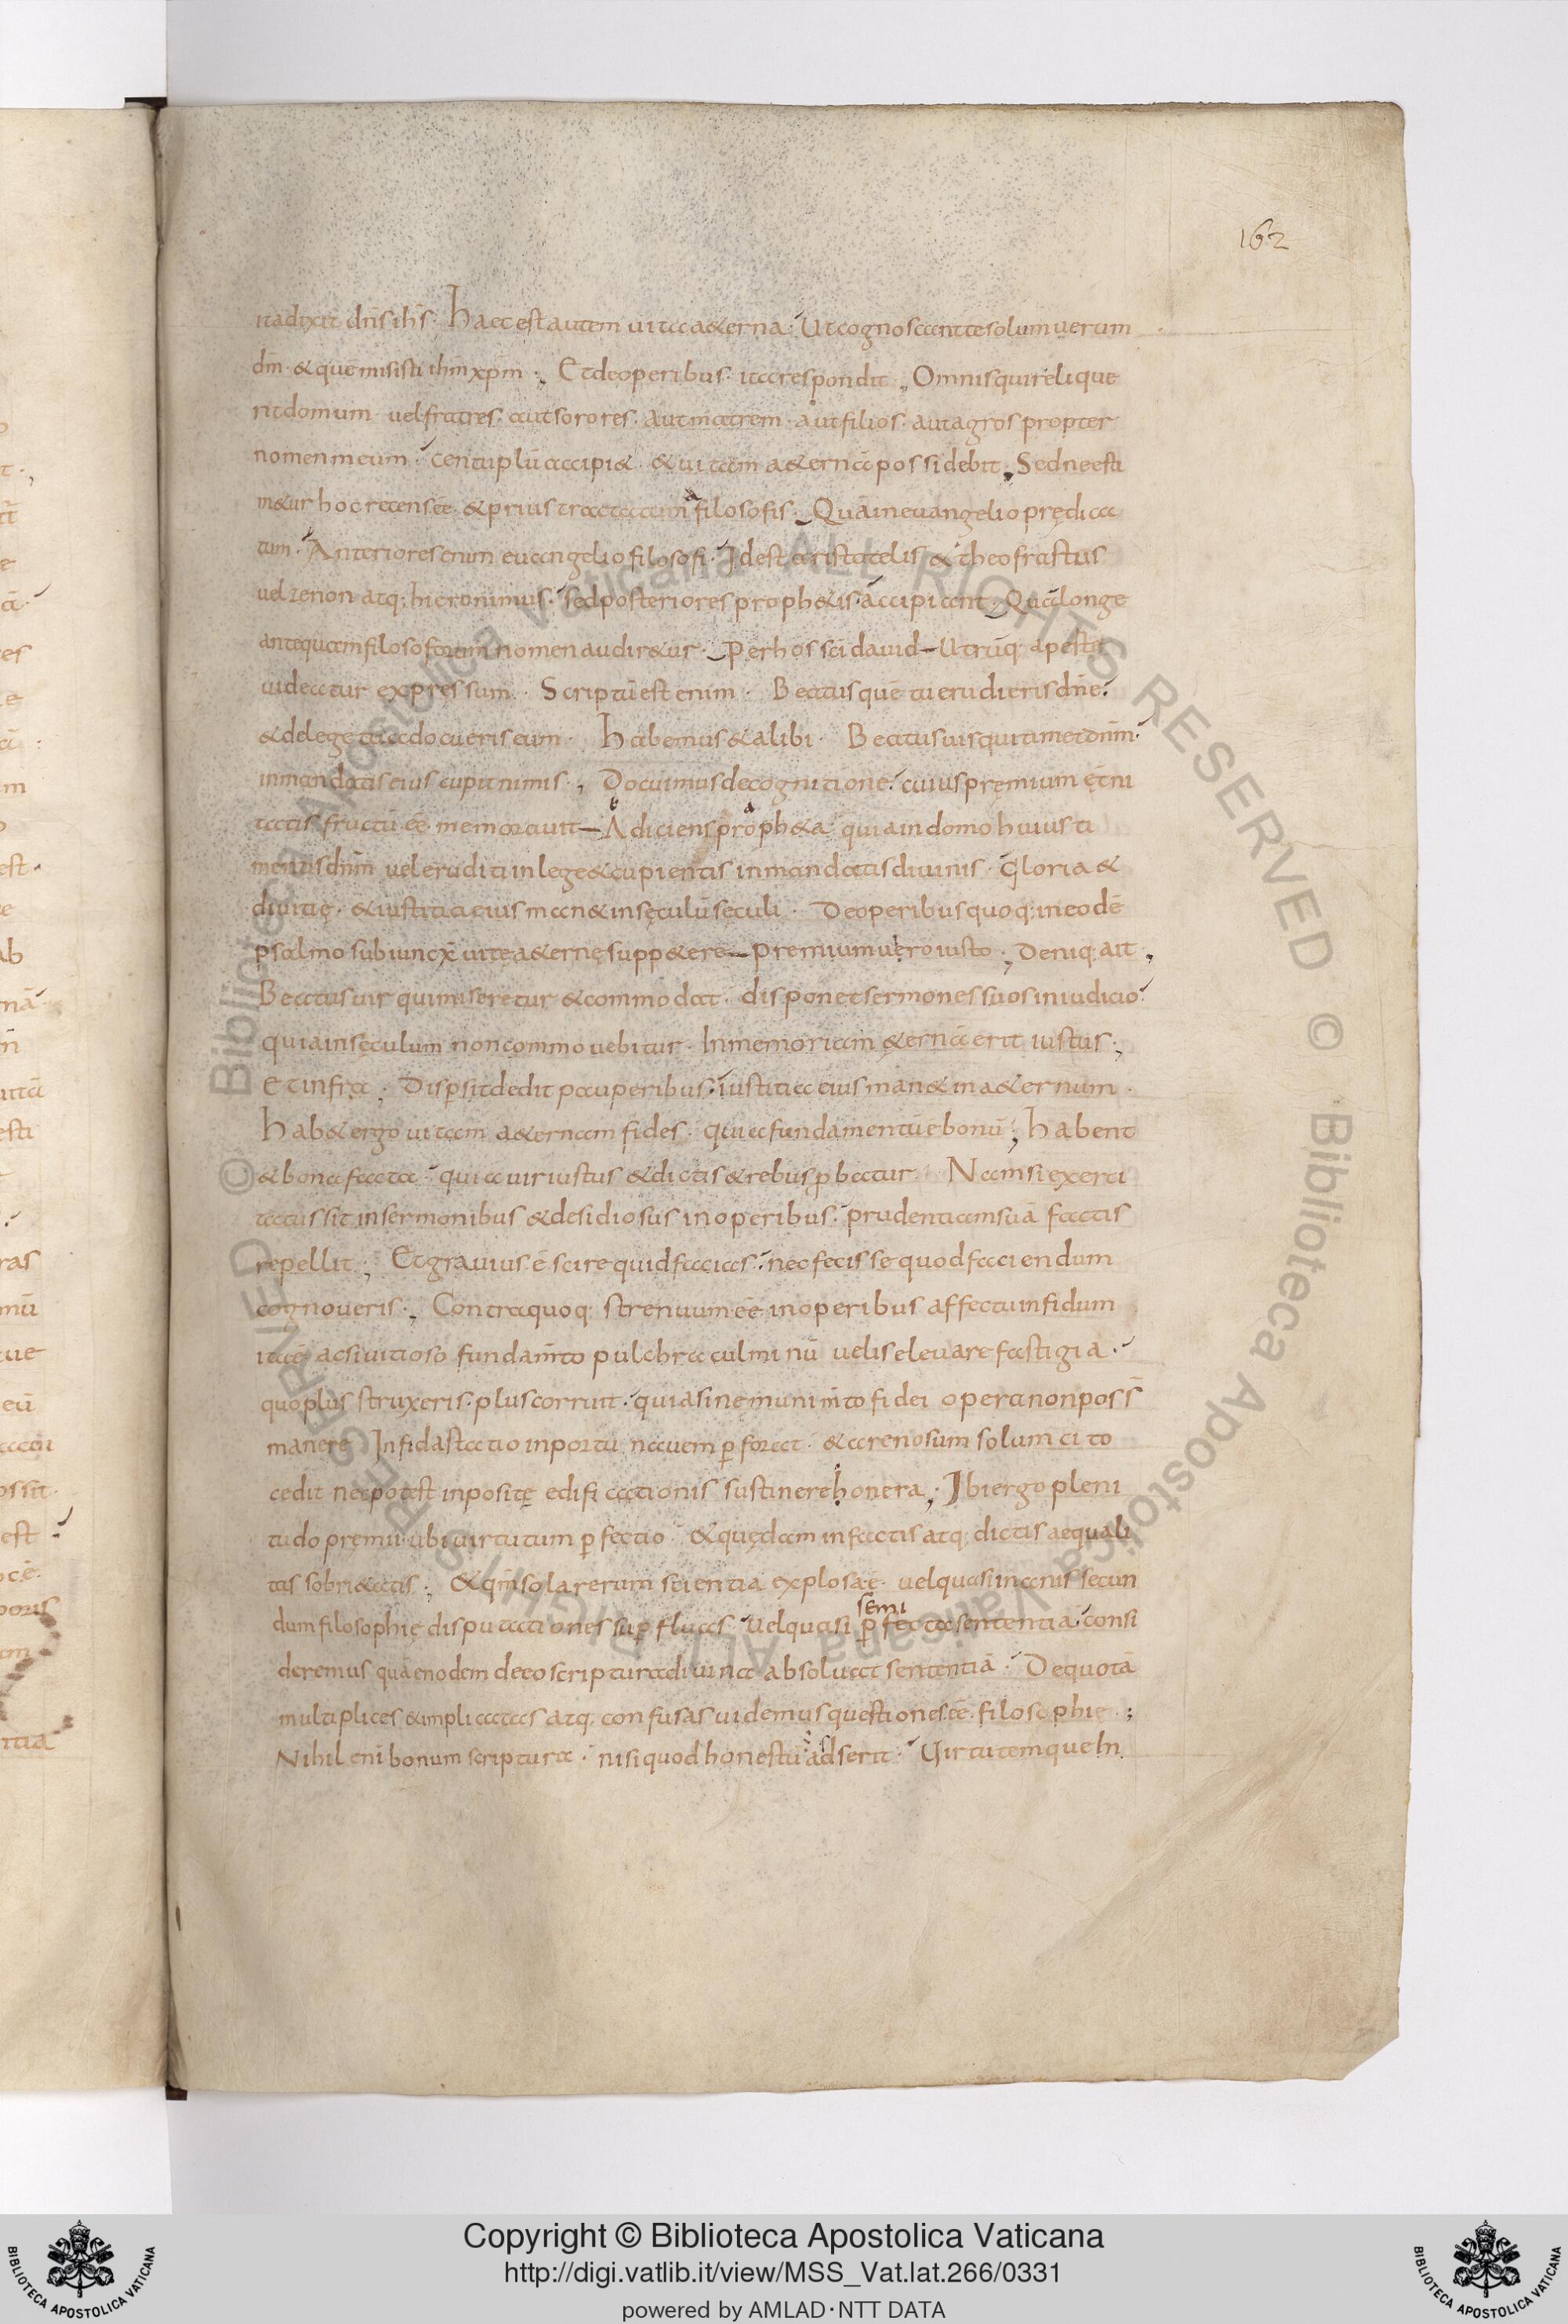 162
ita dixit dn̄s ih̄s. Haec est autem uita aeterna. Ut cognoscant te solum uerum
dm̄. & quē misisti ihm̄ xpm̄. Et de operibus ita respondit. Omnis qui relique
rit domum uel fratres aut sorores. aut matrem. aut filios. aut agros propter
nomen meum. centuplū accipi&. & uitam a&ernā possidebit. Sed ne esti
m&ur hoc recens ēē. & prius tractatum a filosofis. Quā in euangelio prędica
tum. Anteriores enim euangelio filosofi. Id est aristotelis & theofrastus
uel zenon atq; hieronimus. sed posteriores proph&is accipiant. Quā longe
antequam filosoforum nomen audir&ur. Per hos sc̄i dauid utrūq; aperte
uideatur expręssum. Scriptū est enim. Beatus quē tu erudieris dn̄e.
& de lege tua docueris eum. Habemus & alibi. Beatus uir qui timet dnm̄.
in mandatis eius cupit nimis. Docuimus de cognitione. cuius pręmium ętni
tatis fructū ēē memorauit. Adiciens proph&a quia in domo huius ti
mentis dnm̄ uel eruditi in lege & cupientis in mandatis diuinis. Gloria &
diuitię. & iustitia eius man& in sęculū seculi. De operibus quoq; in eodē
psalmo subiuncx̄ uitę a&ernę supp&ere premium uero iusto. Deniq; ait.
Beatus uir qui miseretur & commodat. disponet sermones suos in iudicio.
quia in sęculum non commouebitur. In memoriam &ernā erit iustus.
Et infra. Dispersit dedit pauperibus. iustitia eius man& in a&ernum.
Hab& ergo uitam a&ernam fides. quia fundamentū ē bonū. Habent
& bona facta. quia uir iustus & dictis & rebus ꝓbatur. Nam si exerci
tatus sit in sermonibus & desidiosus in operibus. prudentiam suā factis
repellit. Et grauius ē scire quid facias. nec fecisse quod faciendum
cognoueris. Contra quoq; strenuum ēē in operibus affectu infidum
ita ē ac si uitioso fundam̄to pulchra culminū uelis eleuare fastigia.
quo plus struxeris. plus corruit. quia sine munim̄to fidei opera non poss̄
manere. Infida statio in portu nauem ꝑforat. & arenosum solum cito
cedit nec potest inpositę edificationis sustinere honera. Ibi ergo pleni
tudo pręmii. ubi uirtutum ꝑfectio. & quędam in factis atq; dictis aequali
tas sobri&atis. & qm̄ sola rerum scientia explosa ē. uel quasi inanis secun
dum filosophię disputationes suꝑfluas. Uel quasi semi ꝑfecta sententia. consi
deremus quā enodem de eo scriptura diuina absoluat sententiā. De quo tā
multiplices & implicatas atq; confusas uidemus questiones ēē filosophię.
Nihil enī bonum scriptura. nisi quod honestū adserit. Uirtutemque In
Copyright © Biblioteca Apostolica Vaticana
http://digi.vatlib.it/view/MSS_Vat.lat.266/0331
powered by AMLAD · NTT DATA